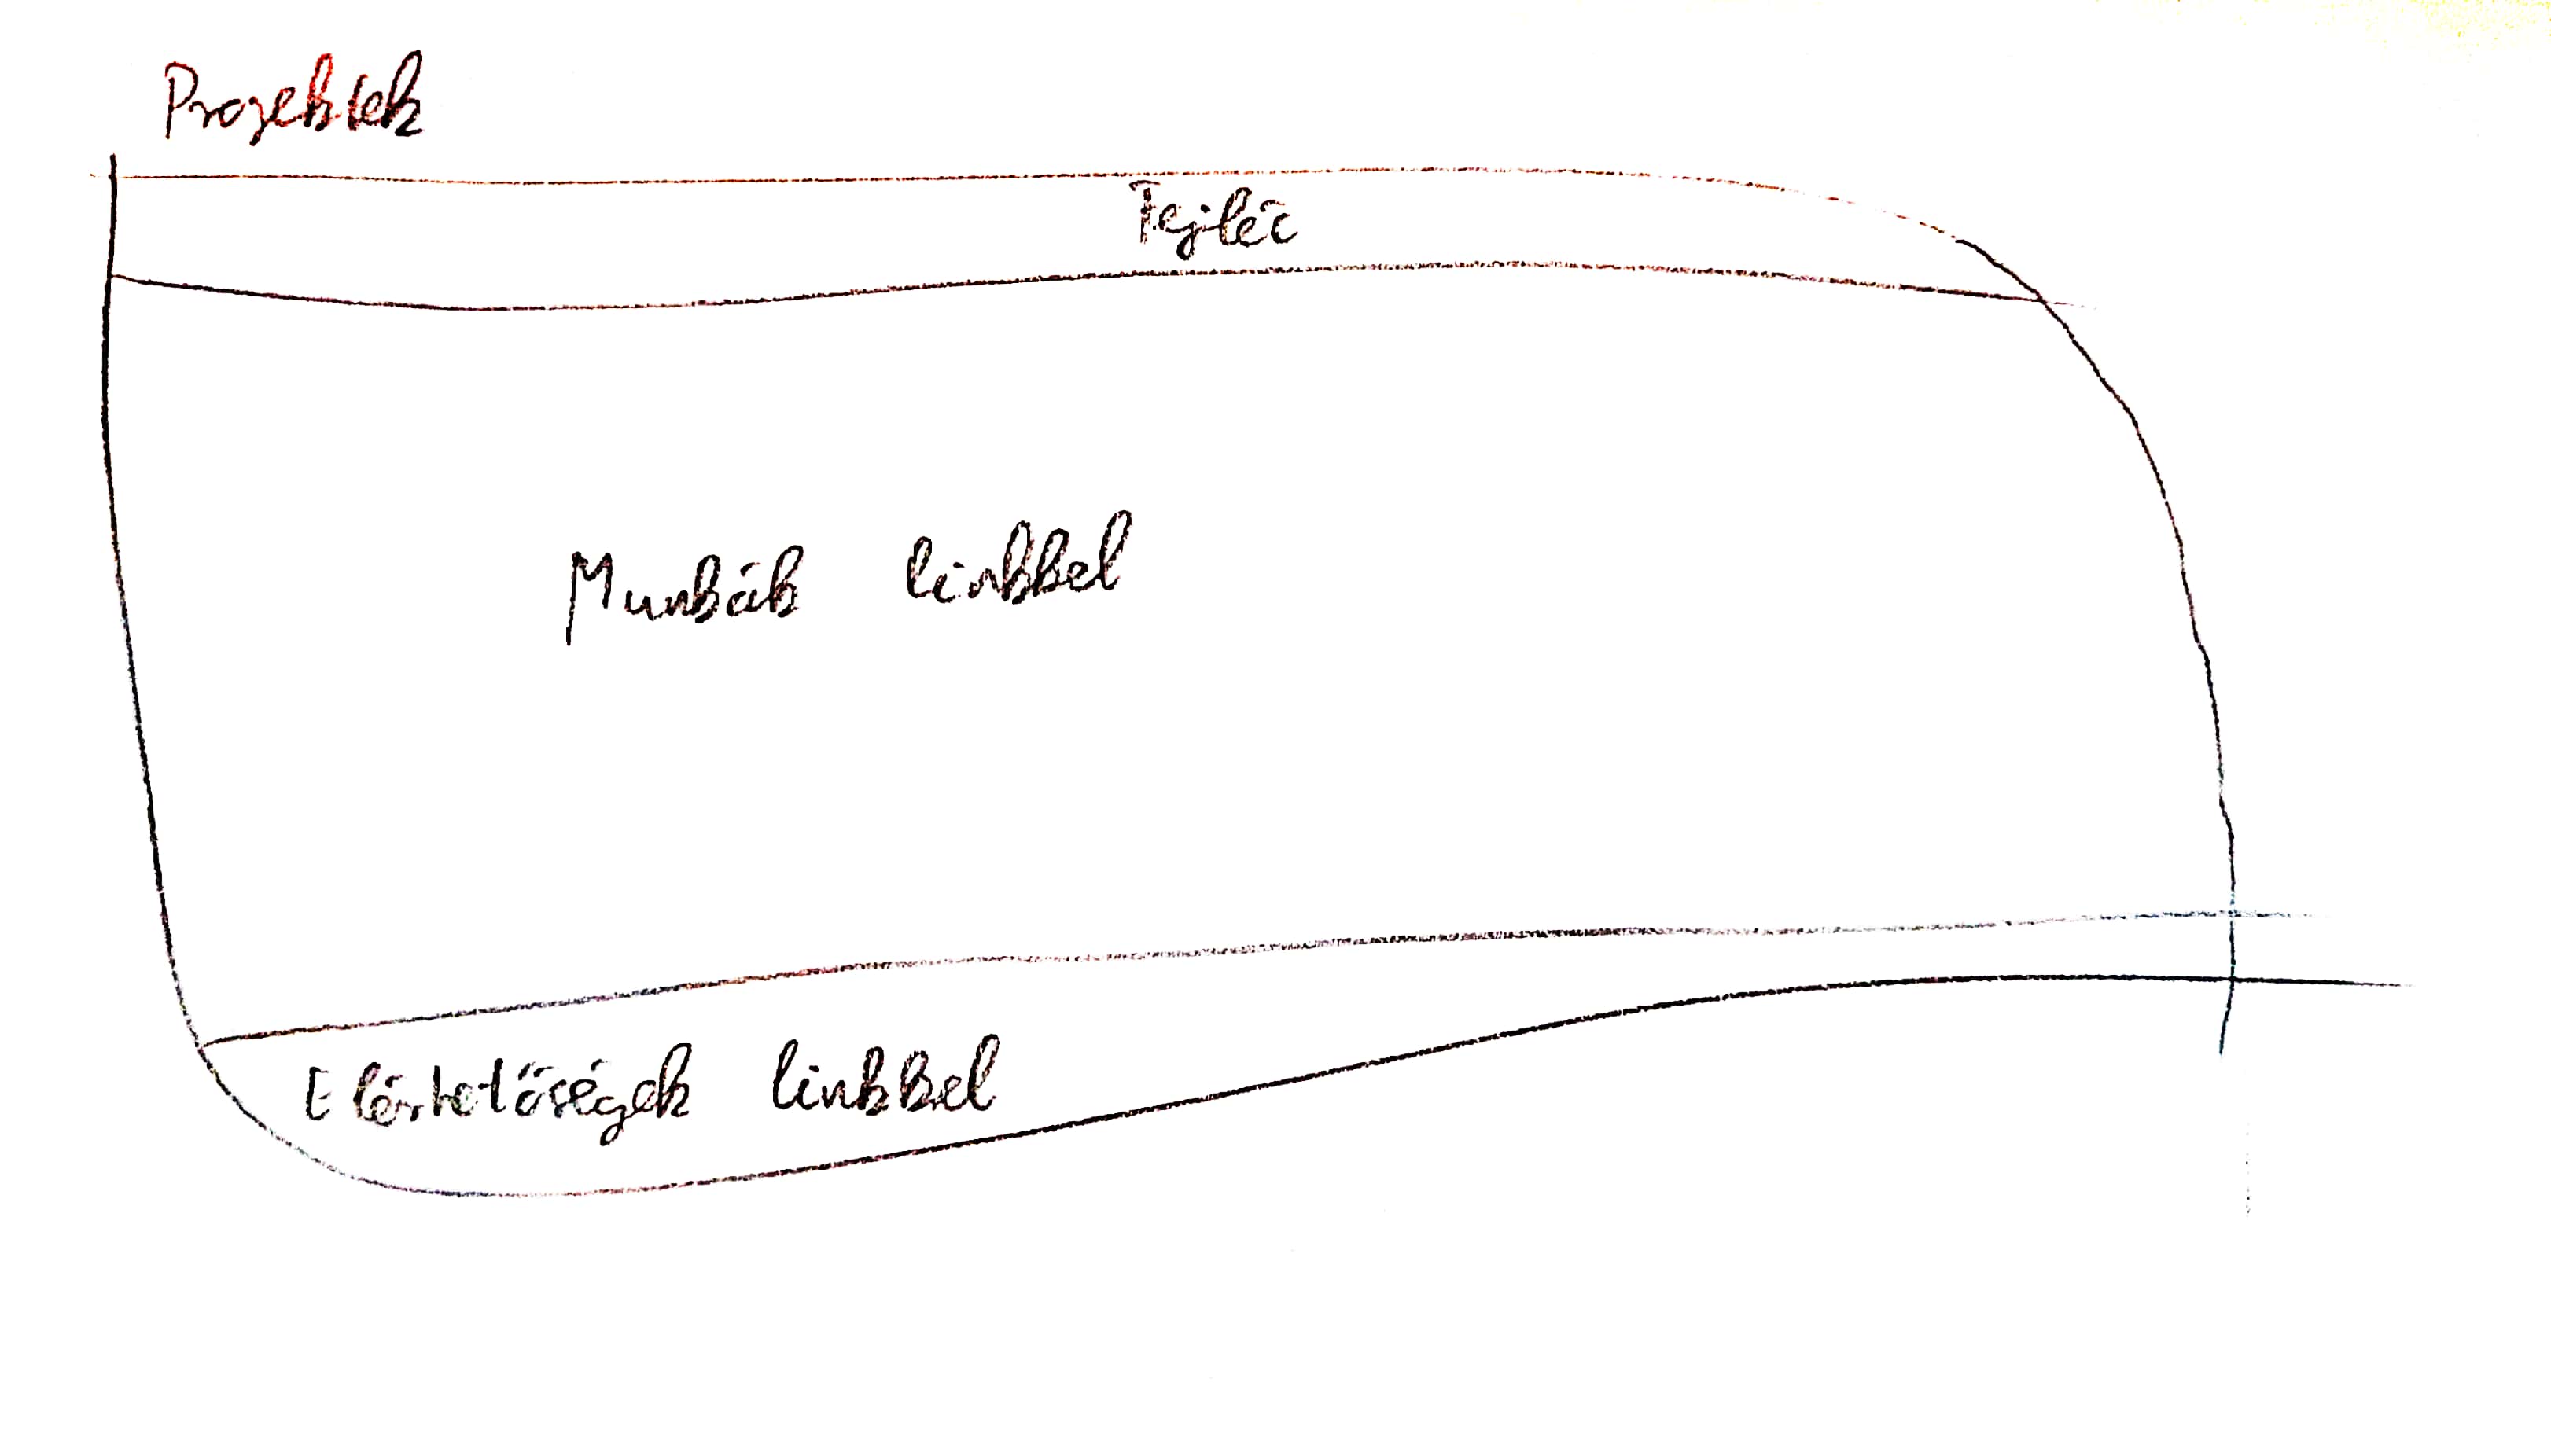 Projektek
Fejléc
Munkák linkkel
Elérhetőségek linkkel